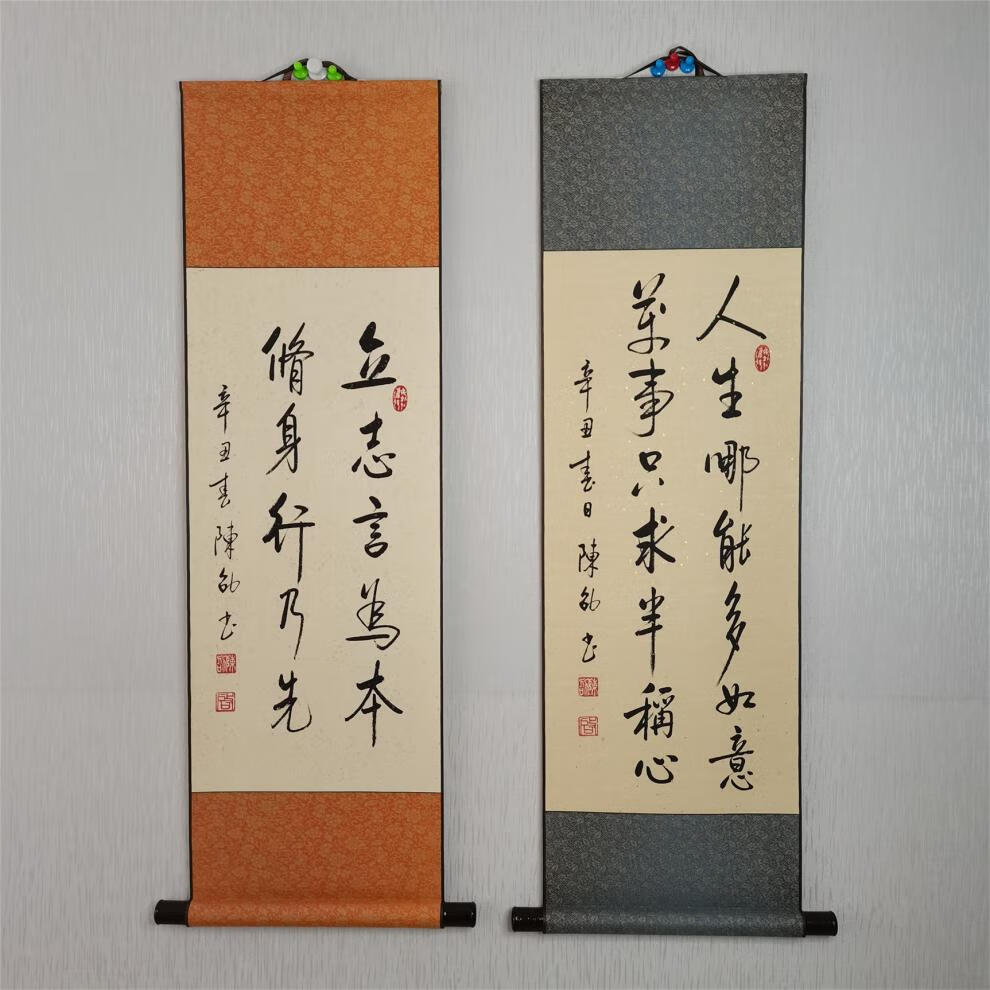 人生哪能多如意
萬事只求半稱心
辛丑春日 陳敏书
立志言為本
脩身行乃先
辛丑春 陳敏书